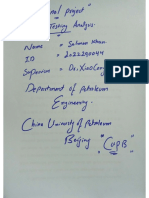 al project"
Testing Analysis.
Name = Salman Khan
ID = 2032290044
Supervisor =
Department of Petroleum
Engineering.
China University of Petroleum
Beijing "CUPB"